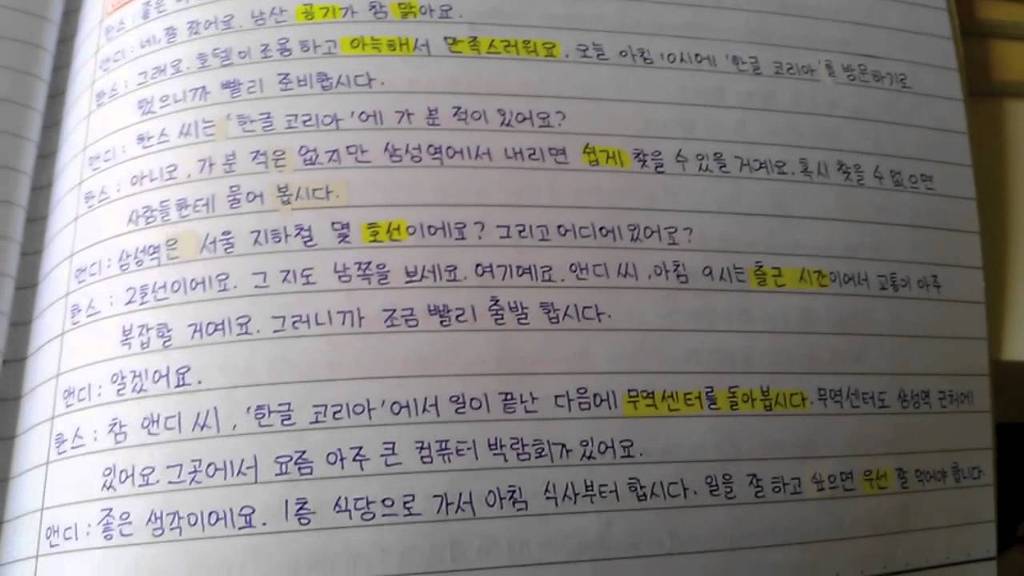 한스 : 좋은
앤디 : 네, 잘 잤어요. 남산 공기가 참 맑아요.
한스 : 그래요. 호텔이 조용하고 아늑해서 만족스러워요. 오늘 아침 10시에 '한글 코리아'를 방문하기로
했으니까 빨리 준비합시다.
앤디 : 한스 씨는 '한글 코리아'에 가 본 적이 있어요?
한스 : 아니요, 가 본 적은 없지만 삼성역에서 내리면 쉽게 찾을 수 있을 거예요. 혹시 찾을 수 없으면
사람들한테 물어 봅시다.
앤디 : 삼성역은 서울 지하철 몇 호선이에요? 그리고 어디에 있어요?
한스 : 2호선이에요. 그 지도 남쪽을 보세요. 여기예요. 앤디 씨, 아침 9시는 출근 시간이어서 교통이 아주
복잡할 거예요. 그러니까 조금 빨리 출발 합시다.
앤디 : 알겠어요.
한스 : 참 앤디 씨, '한글 코리아'에서 일이 끝난 다음에 무역센터를 돌아봅시다. 무역센터도 삼성역 근처에
있어요. 그곳에서 요즘 아주 큰 컴퓨터 박람회가 있어요.
앤디 : 좋은 생각이에요. 1층 식당으로 가서 아침 식사부터 합시다. 일을 잘 하고 싶으면 우선 잘 먹어야 합니다